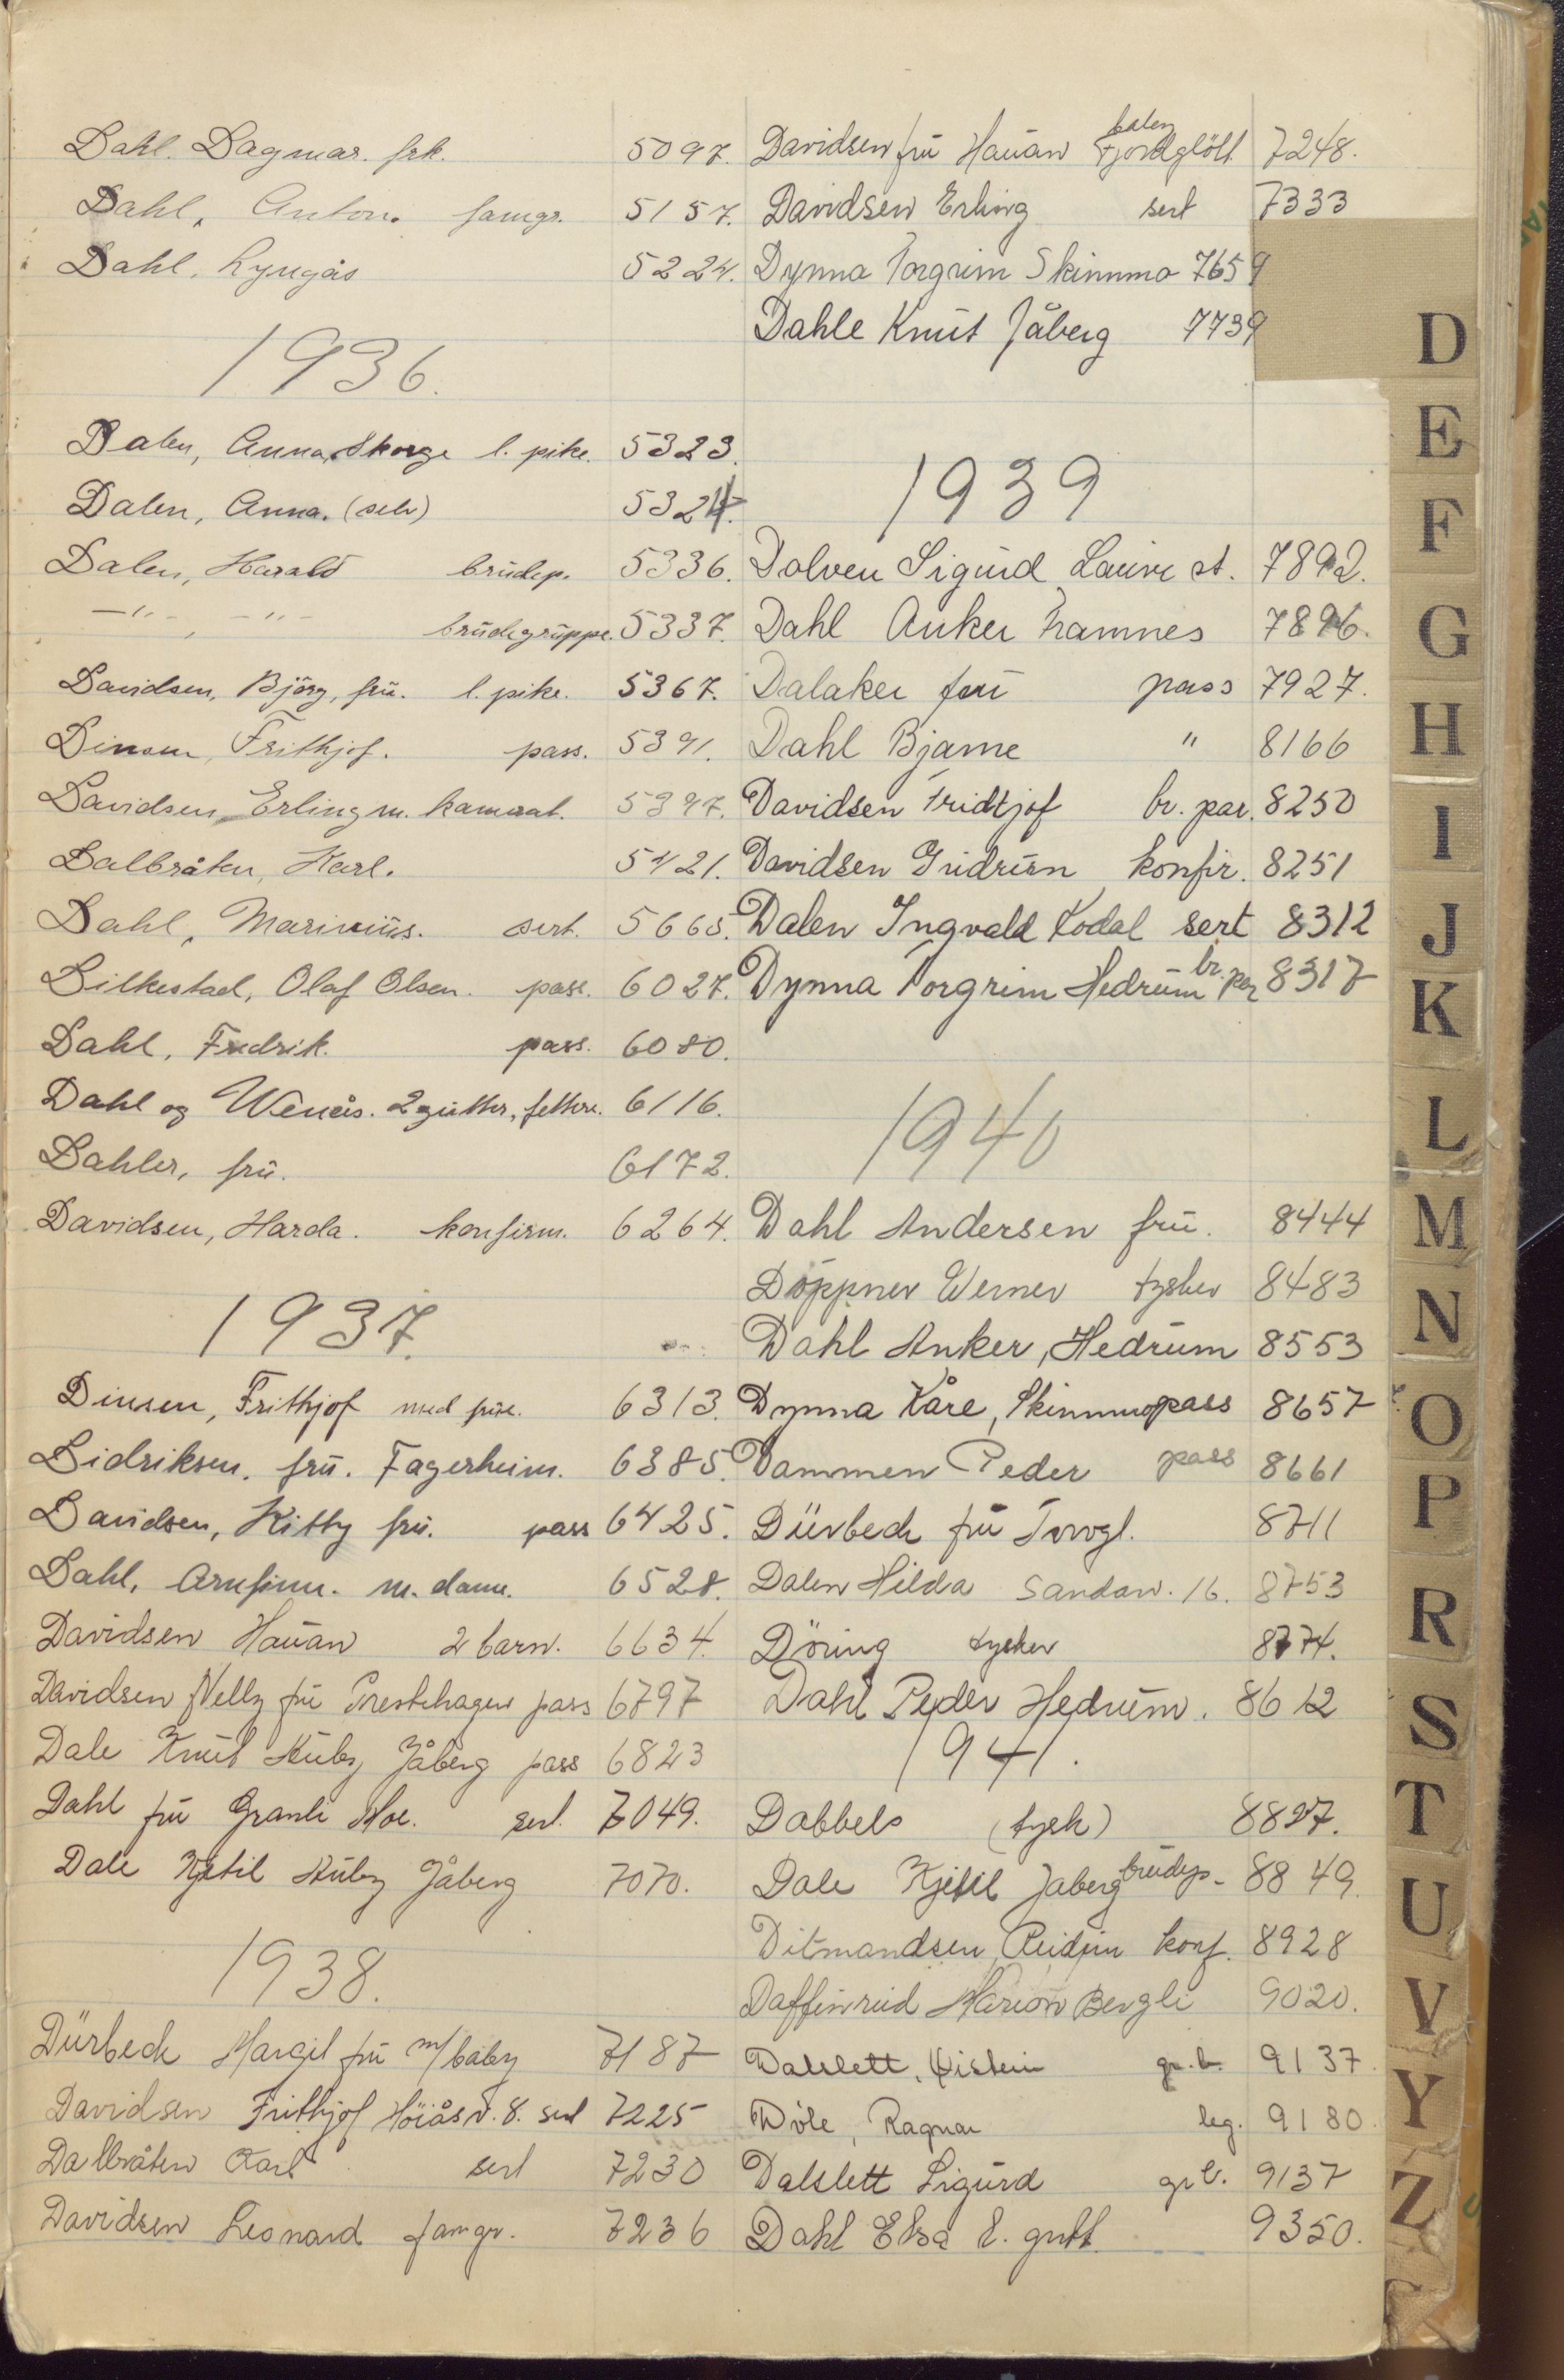 Dahl. Dagmar. frk. 5097.
Dahl, Anton. famgr. 5157.
Dahl, Lyngås 5224.
1936.
Dalen, Anna, Skorge l. pike. 5323.
Dalen, Anna. (selv) 5324.
Dalen, Harald brudep. 5336.
—"— , —"— brudegruppe. 5337.
Davidsen, Björg, frü. l. pike. 5367.
Dinsen, Frithjof. pass. 5391.
Davidsen, Erling m. kamerat. 5397.
Dalbråten, Karl. 5421.
Dahl, Marinius. sert. 5665.
Dilkestad, Olaf Olsen. pass. 6027.
Dahl, Fredrik. pass. 6080.
Dahl og Wenås. 2 gutter, fettere. 6116.
Dahler, frü. 6172.
Davidsen, Harda. konfirm. 6264.
1937.
Dinsen, Frithjof med frue. 6313.
Didriksen, frü. Fagerheim. 6385.
Davidsen, Kitty frü. pass 6425.
Dahl, Arnfinn. m. dame. 6528.
Davidsen Hauan 2 barn. 6634.
Davidsen Nelly frü Prestehagen pass 6797
Dale Knut Huby Jåberg pass 6823
Dahl frü Granli Moe. sert. 7049.
Dale Kjetil Huby Jåberg 7070.
1938.
Dürbeck Margit frü m/baby 7187
Davidsen Frithjof Höiåsv. 8. sert 7225
Dalbråten Karl sert 7230
Davidsen Leonard famgr. 7236
Davidsen frü Hauan Fjordglött 7248.
Davidsen Erling sert 7333
Dynna Torgrim Skinnmo 7659
Dahle Knut Jåberg 7739
1939
Dolven Sigurd Lauve st. 7892.
Dahl Anker Namnes 7896.
Dalaker frü pass 7927.
Dahl Bjarne " 8166
Davidsen Fridtjof br. par. 8250
Davidsen Gudrün konfir. 8251
Dalen Ingvald Kodal sert 8312
Dynna Torgrim Hedrüm br. par 8317
1940
Dahl Andersen frü. 8444
Döppner Werner tysker 8483
Dahl Anker, Hedrüm 8553
Dynna Kåre, Skinnmo pass 8657
Dammen Peder pass 8661
Dürbeck frü Torvgl. 8711
Dalen Hilda Sandarv. 16. 8753
Döring tysker 8774.
Dahl Peder Hedrüm. 8612
1941.
Dabbels (tysk) 8827.
Dale Kjetil Jaberg brudep. 8849.
Ditmandsen, Reidün konf. 8928
Daffinrud Marion Bergli 9020.
Dalslett, Øistein gr.b. 9137.
Döle, Ragnar leg. 9180.
Dalslett Sigürd gr b. 9137
Dahl Elsa l. gutt 9350.
D
E
F
G
H
I
J
K
L
M
N
O
P
R
S
T
U
V
Y
Z